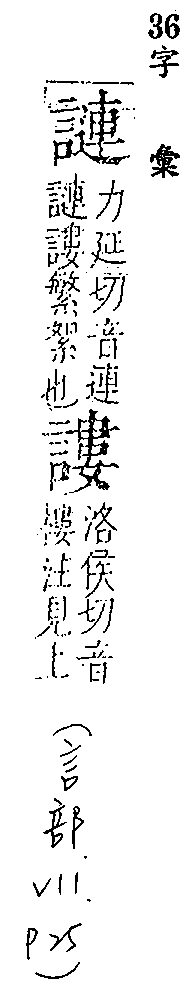 36字彙
謰
力延切音連
謰謱繁絮也
謱
洛侯切音
樓註見上
(言部. VII. P25)